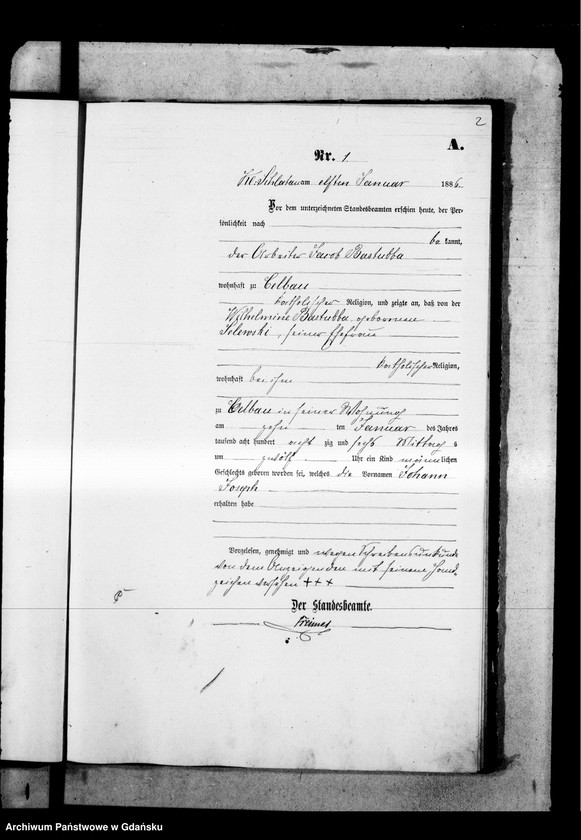 2
A.
Nr. 1.
Kl. Schlatau am elften Januar 1886.
Vor dem unterzeichneten Standesbeamten erschien heute, der Per-
sönlichkeit nach
be kannt,
der Arbeiter Jacob Bastubba
wohnhaft zu Celbau
katholischer Religion, und zeigte an, daß von der
Wilhelmine Bastubba geborenen
Selewski, seiner Ehefrau
katholischer Religion,
wohnhaft bei ihm
zu Celbau in seiner Wohnung
am zehn ten Januar des Jahres
tausend acht hundert acht zig und sechs Mittags
um zwölf Uhr ein Kind männlichen
Geschlechts geboren worden sei, welches die Vornamen Johann
Joseph
erhalten habe
Vorgelesen, genehmigt und wegen Schreibensunkunde
von dem Anzeigenden mit seinem Hand-
zeichen versehen +++
Der Standesbeamte.
Archiwum Państwowe w Gdańsku